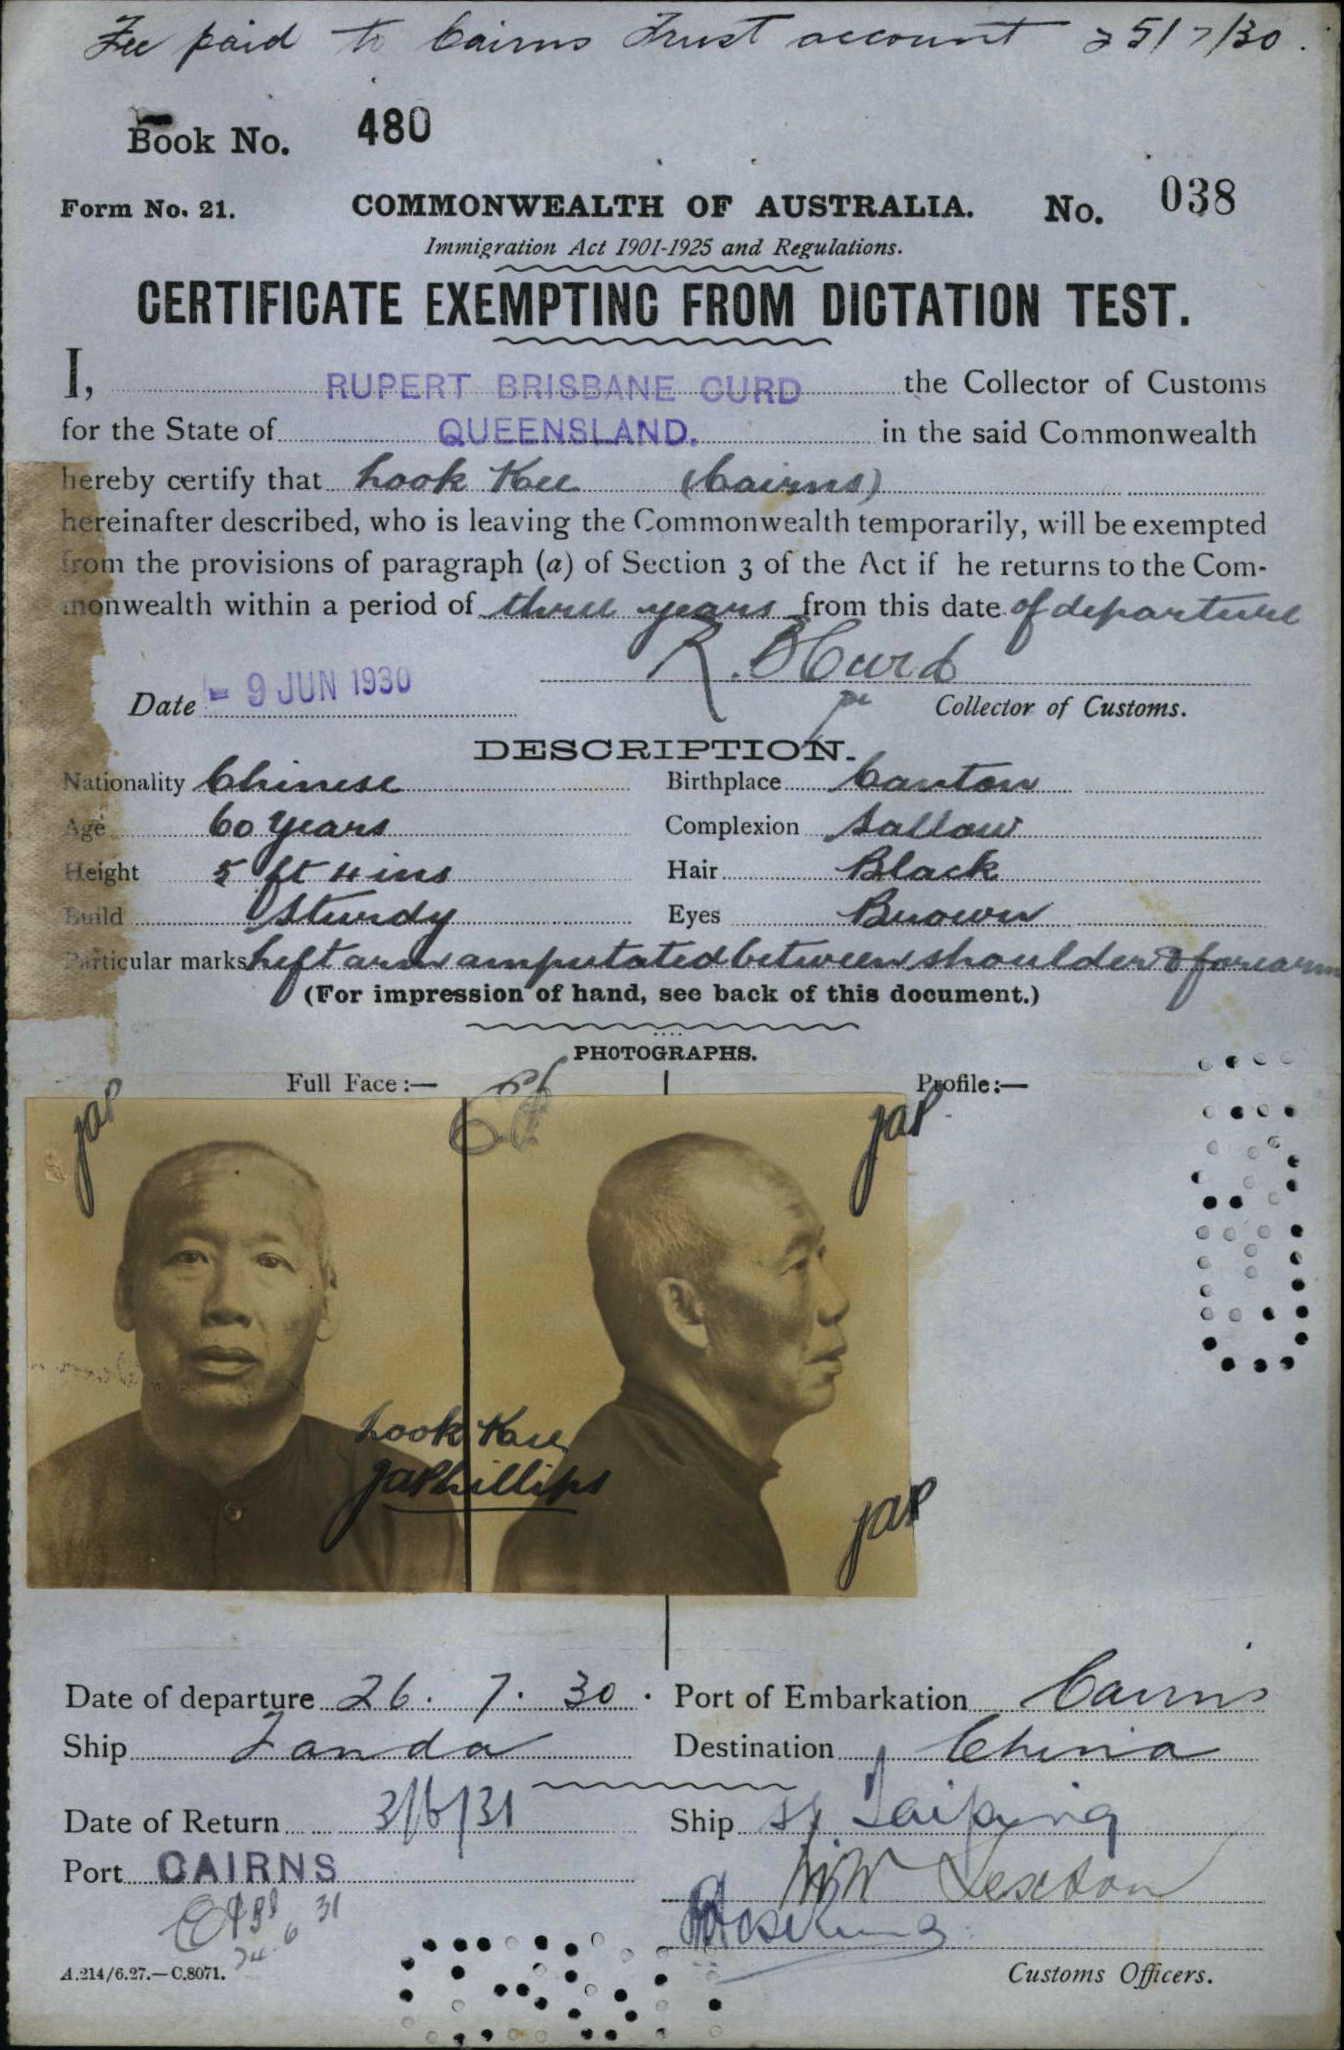 Fee paid to Cairns Trust account 25/7/30.
Book No. 480
Form No. 21. COMMONWEALTH OF AUSTRALIA. No. 038
Immigration Act 1901-1925 and Regulations.
CERTIFICATE EXEMPTING FROM DICTATION TEST.
I, RUPERT BRISBANE CURD the Collector of Customs
for the State of QUEENSLAND. in the said Commonwealth
hereby certify that Look Kee (Cairns)
hereinafter described, who is leaving the Commonwealth temporarily, will be exempted
from the provisions of paragraph (a) of Section 3 of the Act if he returns to the Com-
monwealth within a period of three years from this date of departure
R. B Curd
Date - 9 JUN 1930 Collector of Customs.
DESCRIPTION.
Nationality Chinese Birthplace Canton
Age 60 Years Complexion Sallow
Height 5 ft 4 ins Hair Black
Build Sturdy Eyes Brown
Particular marks Left arm amputated between shoulder & forearm
(For impression of hand, see back of this document.)
PHOTOGRAPHS.
Full Face:— Profile:—
JAP JAP
Look Kee
JAPhillips
JAP
Date of departure 26. 7. 30. Port of Embarkation Cairns
Ship Tanda Destination China
Date of Return 3/6/31 Ship SS Taiping
Port CAIRNS
A.214/6.27.—C.8071. Customs Officers.